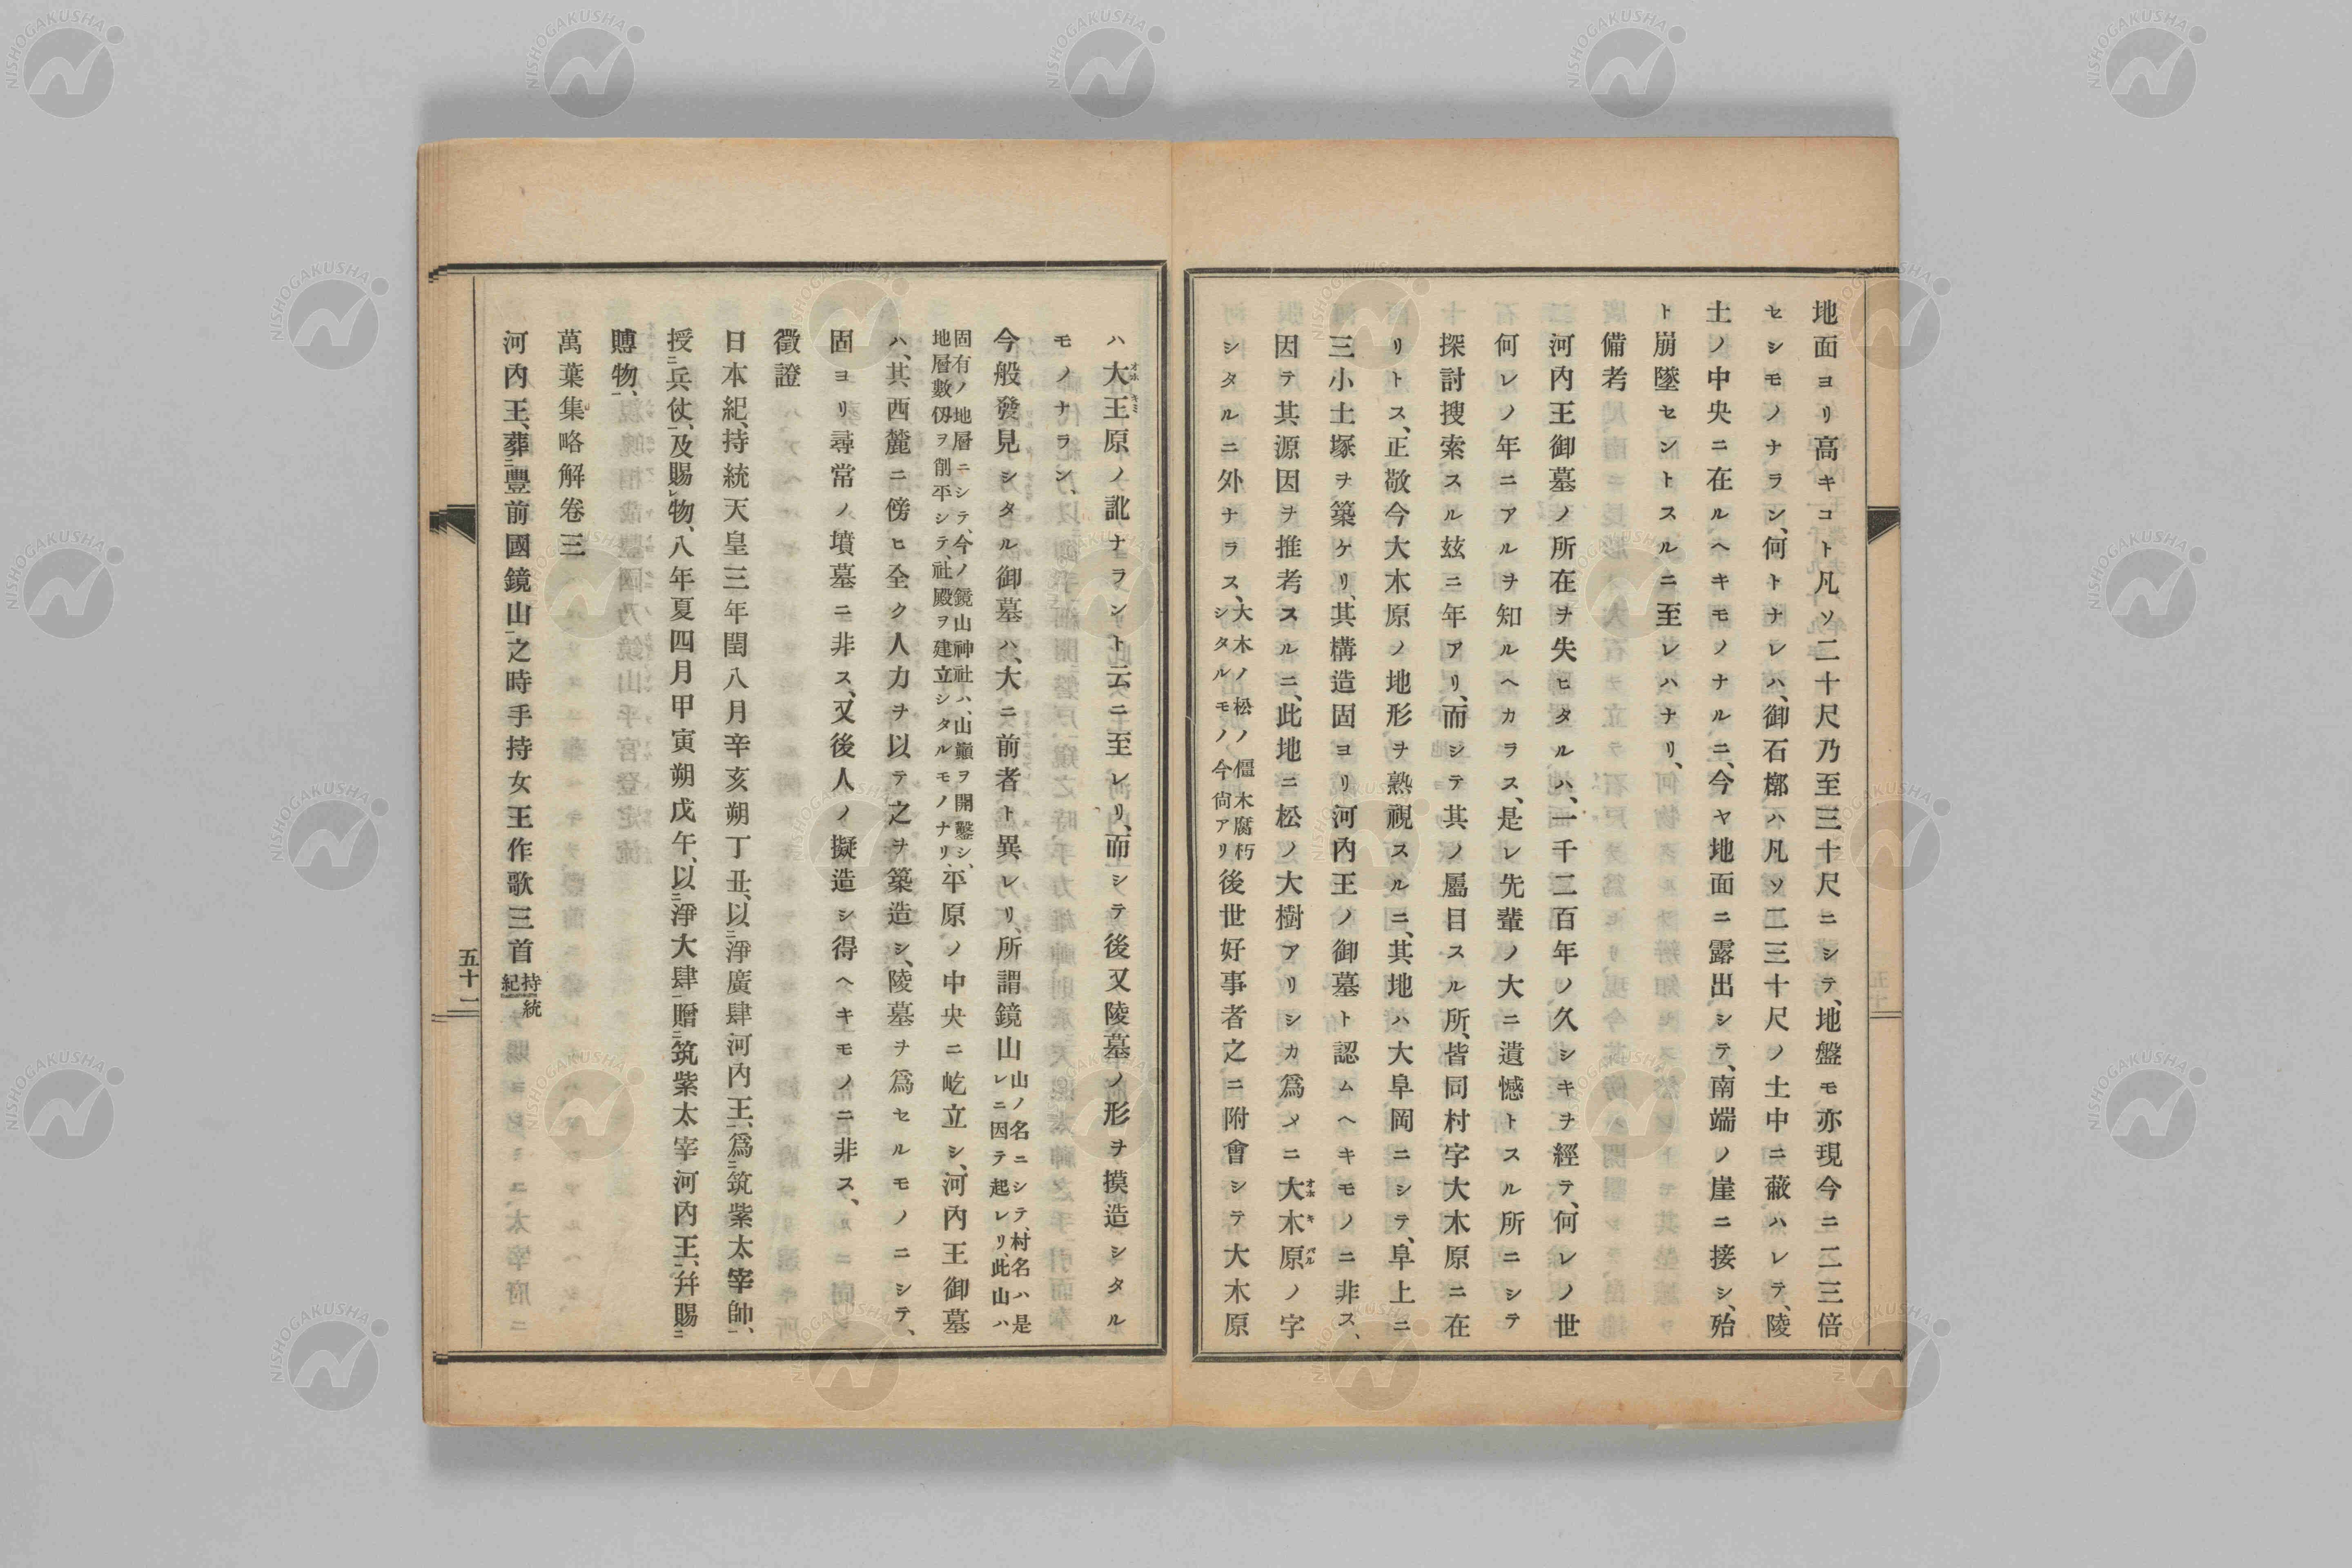 地面ヨリ高キコト凡ソ二十尺乃至三十尺ニシテ、地盤モ亦現今ニ二三倍
セシモノナラン、何トナレハ、御石槨ハ凡ソ二三十尺ノ土中ニ蔽ハレテ、陵
土ノ中央ニ在ルヘキモノナルニ、今ヤ地面ニ露出シテ、南端ノ崖ニ接シ、殆
ト崩墜セントスルニ至レハナリ、
備考
河内王御墓ノ所在ヲ失ヒタルハ、一千二百年ノ久シキヲ經テ、何レノ世
何レノ年ニアルヲ知ルヘカラス、是レ先輩ノ大ニ遺憾トスル所ニシテ
探討搜索スル玆ニ年アリ、而シテ其ノ屬目スル所、皆同村字大木原ニ在
リトス、正敬今大木原ノ地形ヲ熟視スルニ、其地ハ大阜岡ニシテ、阜上ニ
三小土塚ヲ築ケリ、其構造固ヨリ河内王ノ御墓ト認ムヘキモノニ非ス、
因テ其源因ヲ推考スルニ、此地ニ松ノ大樹アリシカ爲メニ大木原ノ字
オホキバル
シタルニ外ナラス、大木ノ松ノ僵木腐朽
シタルモノ今尙アリ後世好事者之ニ附會シテ大木原
ハ大王原ノ訛ナラント云ニ至レリ、而シテ後又陵墓ノ形ヲ摸造シタル
オホキミ
モノナラン、
今般發見シタル御墓ハ、大ニ前者ト異レリ、所謂鏡山山ノ名ニシテ、村名ハ是
レニ因テ起レリ、此山ハ
固有ノ地層ニシテ、今ノ鏡山神社ハ、山巓ヲ開鑿シ、
地層數仭ヲ削平シテ、社殿ヲ建立シタルモノナリ、平原ノ中央ニ屹立シ、河内王御墓
ハ、其西麓ニ傍ヒ全ク人力ヲ以テ之ヲ築造シ、陵墓ヲ爲セルモノニシテ、
固ヨリ尋常ノ墳墓ニ非ス、又後人ノ擬造シ得ヘキモノニ非ス、
徵證
日本紀、持統天皇三年閏八月辛亥朔丁丑、以淨廣肆河内王、爲筑紫太宰帥、
授兵仗、及賜物、八年夏四月甲寅朔戊午、以淨大肆贈筑紫太宰河内王、幷賜
賻物、
萬葉集略解卷三
河内王、葬豐前國鏡山之時手持女王作歌三首持統
紀
五十二